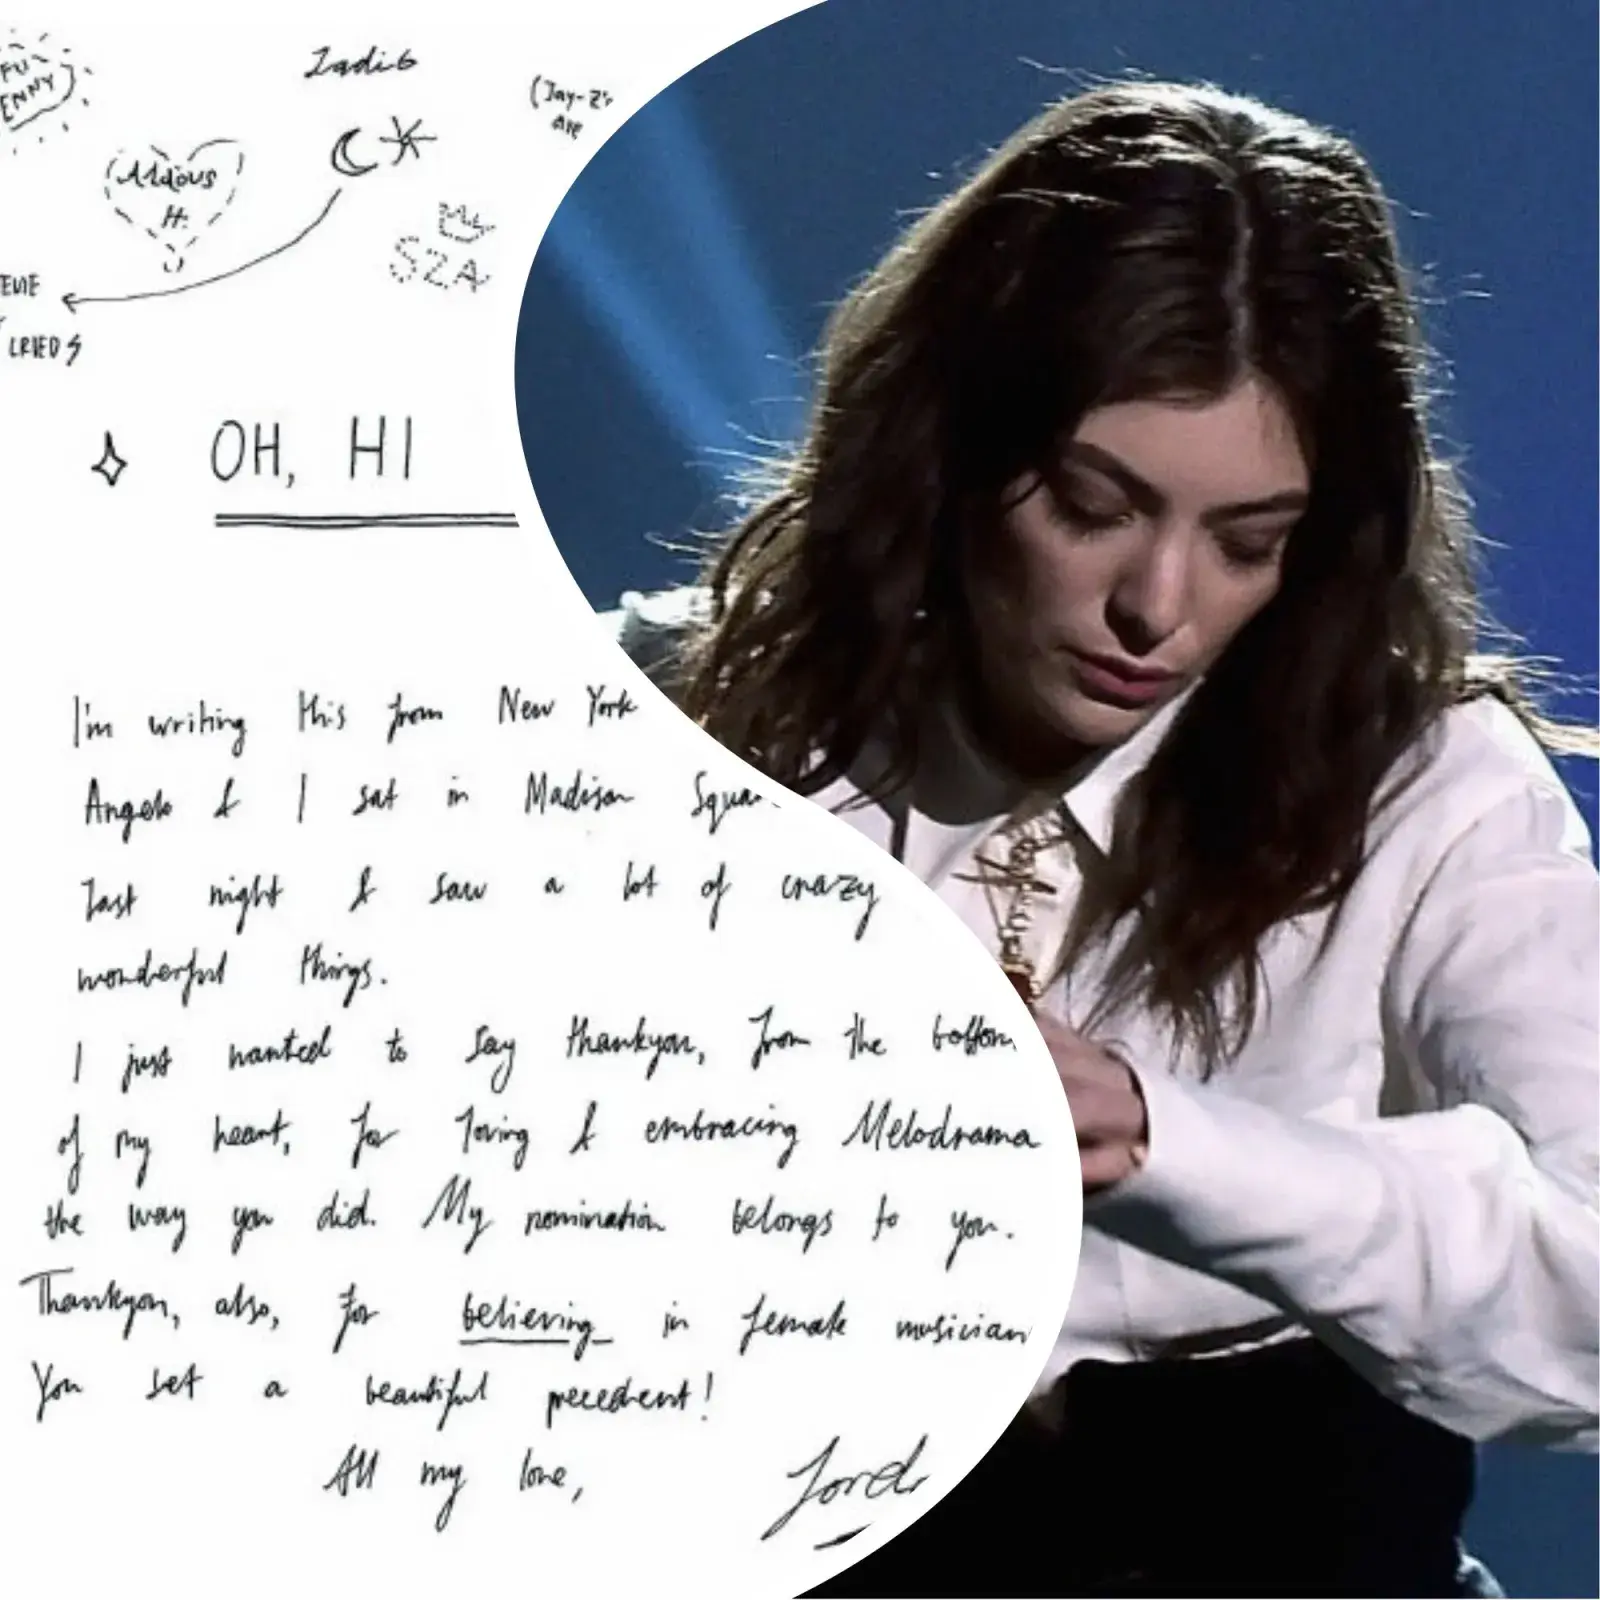 FU
ENNY
Zadie
(Jay-Z's
Aldous
H.
SZA
CRIED
OH, HI
I'm writing this from New York
Angelo & I sat in Madison Squa
last night & saw a lot of crazy
wonderful things.
I just wanted to say thankyou, from the bottom
of my heart, for loving & embracing Melodrama
the way you did. My nomination belongs to you.
Thankyou, also, for believing in female musician
You set a beautiful precedent!
All my love,
Lord